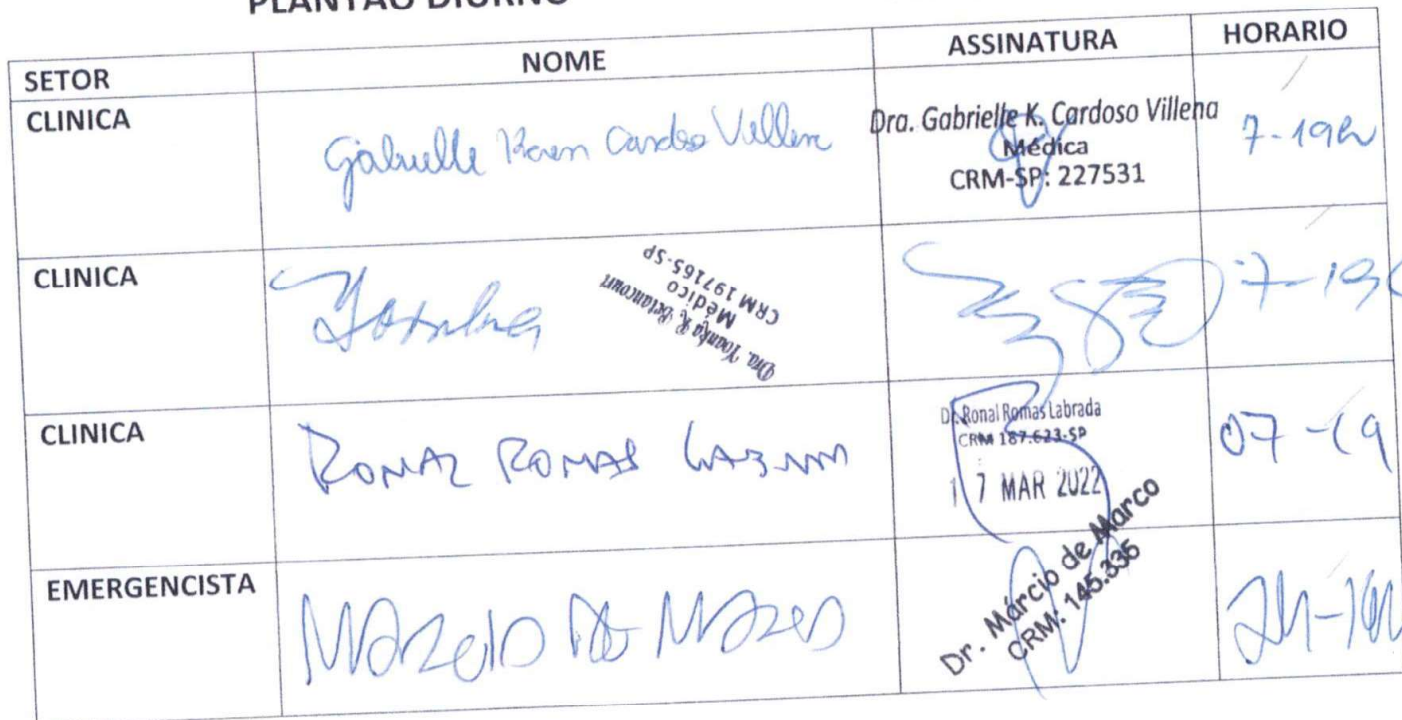 PLANTÃO DIURNO
SETOR NOME ASSINATURA HORARIO
CLINICA Gabrielle Karen Cardoso Villena 7-19h
Dra. Gabrielle K. Cardoso Villena
Médica
CRM-SP: 227531
CLINICA 7-19
Dra. Yoanka R. Betancourt
Médico
CRM 197165-SP
CLINICA RONAL ROMAS 07-19
Dr. Ronal Romas Labrada
CRM 187.623-SP
17 MAR 2022
EMERGENCISTA MARCIO DE MARCO
Dr. Márcio de Marco
CRM: 145.336